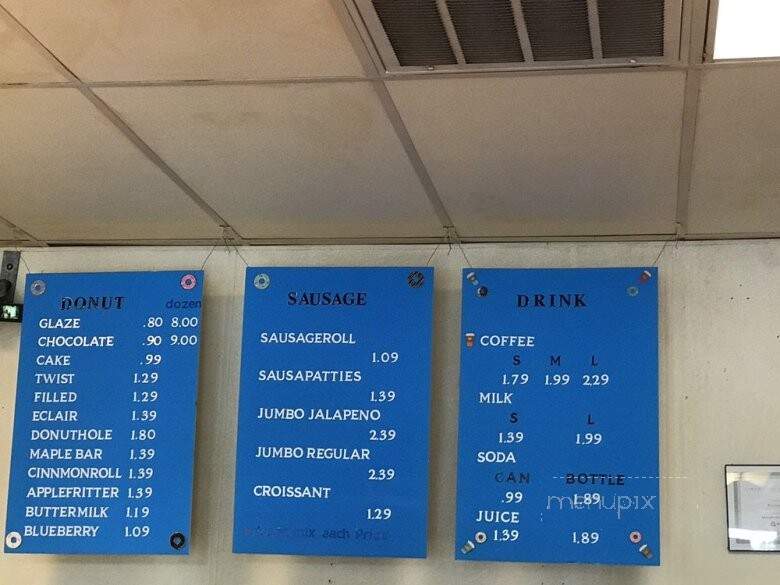 DONUT dozen
GLAZE .80 8.00
CHOCOLATE .90 9.00
CAKE .99
TWIST 1.29
FILLED 1.29
ECLAIR 1.39
DONUTHOLE 1.80
MAPLE BAR 1.39
CINNMONROLL 1.39
APPLEFRITTER 1.39
BUTTERMILK 1.19
BLUEBERRY 1.09
SAUSAGE
SAUSAGEROLL
1.09
SAUSAPATTIES
1.39
JUMBO JALAPENO
2.39
JUMBO REGULAR
2.39
CROISSANT
1.29
mix each Price
DRINK
COFFEE
S M L
1.79 1.99 2.29
MILK
S L
1.39 1.99
SODA
CAN BOTTLE
.99 1.89
menupix
JUICE
1.39 1.89